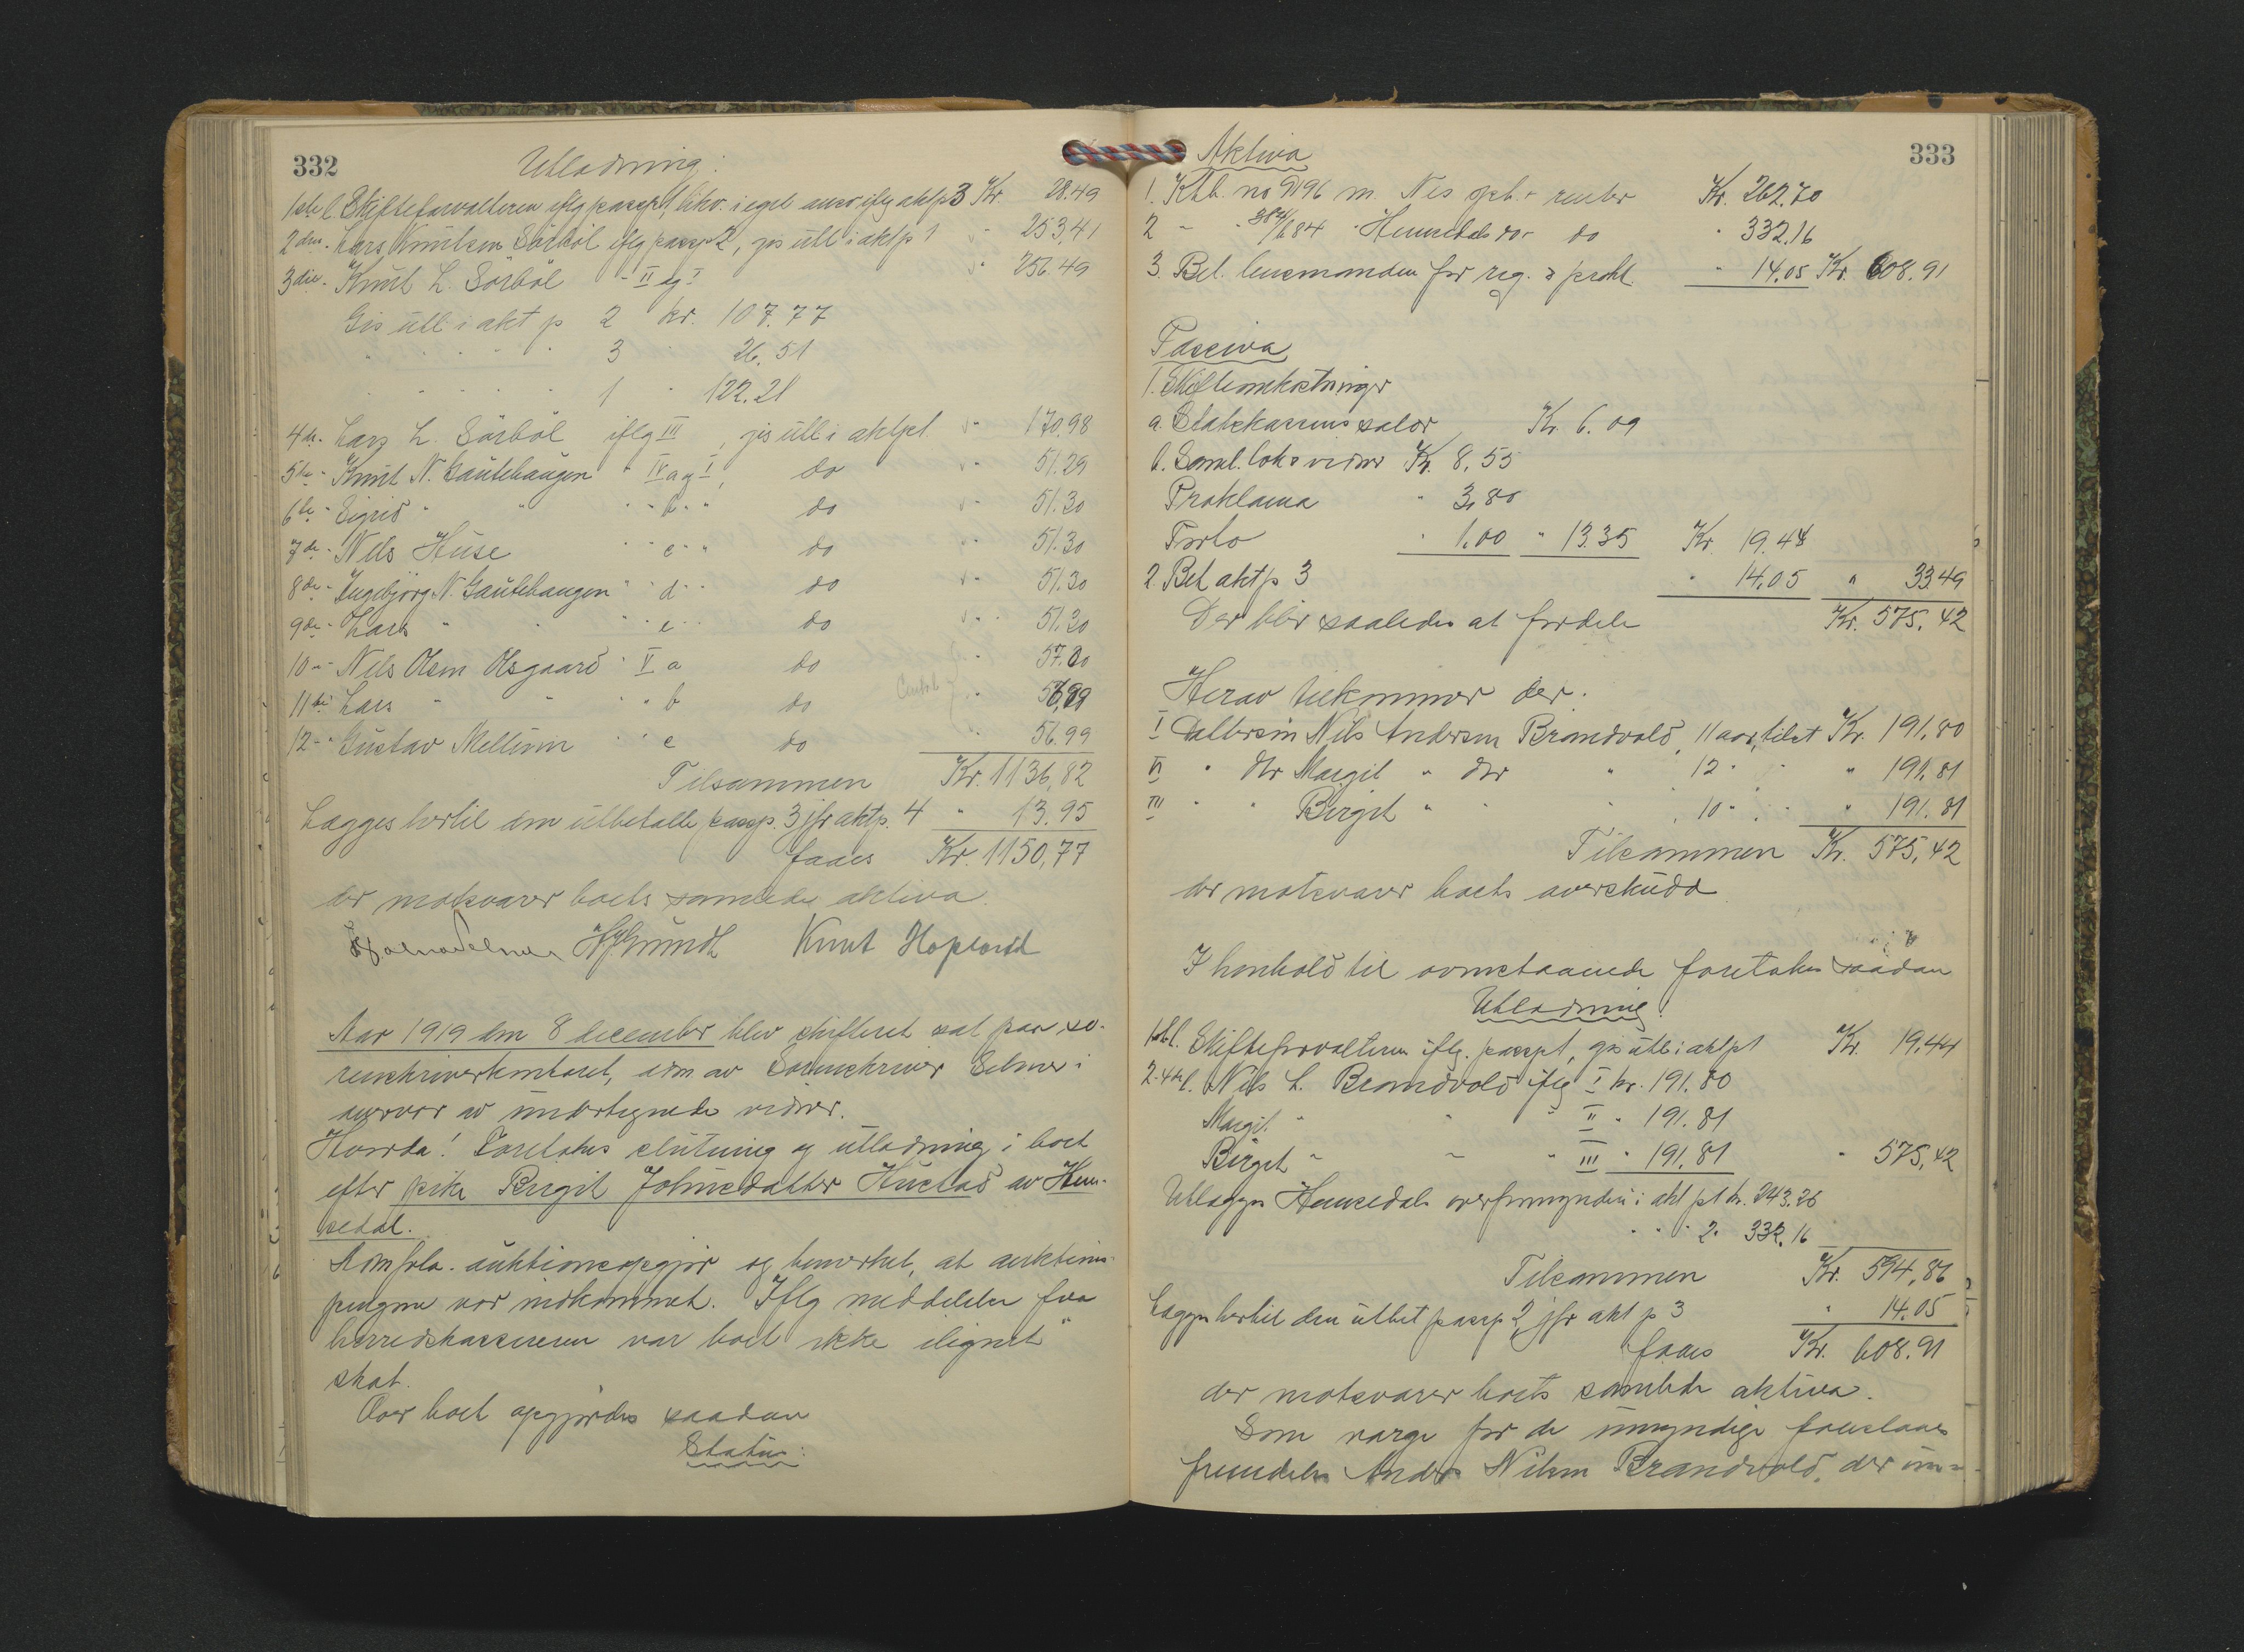 332
Utlodning:
1ste l. Skifteforvalteren iflg passp 1, bekv. i egen anv. iflg aktp 3 Kr. 28.49
2den - Lars Knutsen Sörböl iflg passp 2, gis utl i aktp 1 " 253,41
3die - Knut L. Sörböl - II og I " 256.49
Gis utl i akt p 2 kr. 107.77
" " " " 3 " 26.51
" " " " 1 " 122.21
4de - Lars L. Sörböl iflg III, gis utl i aktp 1 " 170,98
5te - Knut N. Gautehaugen " IV a og I, do " 51.29
6te - Sigrid " " " " b " " do " 51.30
7de - Nils Huse " " c " " do " 51.30
8de - Ingebjörg N. Gautehaugen " " d " " do " 51.30
9de - Lars " " " " e " " do " 51.30
10de - Nils Olsen Olsgaard " V a do " 57.00
11te Lars " " " " b do " 56,99
12- " Gustav Mellum " " c do " 56.99
Tilsammen Kr. 1136,82
Lægges hertil den utbetalte passp. 3 jfr aktp. 4 " 13.95
faaes Kr. 1150,77
der motsvarer boets samlede aktiva.
HJGrundt Knut Hopland
Aar 1919 den 8 december blev skifteret sat paa so-
renskriverkontoret, adm av Sorenskriver Selmer i
nærvær av undertegnede vidner.
Hvorda! Foretokes slutning og utlodning i boet
efter pike Birgit Johnsdatter Hustad av Hem-
sedal.
Adm frla. auktionsopgjør og bemerket, at auktions-
pengene var indkommet. Iflg meddelelse fra
herredskassereren var boet ikke ilignet
skat.
Over boet opgjordes saadan
Status:
333
Aktiva
1. Ktb. no 9196 m. Nes spb. + renter Kr. 262.70
2 - " 384/684 " Hemsedals do - do " 332.16
3. Bet. lensmanden for reg. & prokl. " 14.05 Kr. 608.91
Passiva
1. Skifteomkostninger
a. Statskassens salær Kr. 6.09
b. Saml. lok & vidner Kr. 8.55
Proklama " 3,80
Porto " 1,00 " 13.35 Kr. 19.44
2. Bet aktp 3 " 14,05 " 33.49
Der blir saaledes at fordele Kr. 575,42
Herav tilkommer der:
I Dattersön Nils Andersen Brandvold, 11 aar, tilst Kr. 191,80
II " dtr Margit " dtr " 12 " " 191,81
III " " Birgit " " " 10 " " " 191.81
Tilsammen Kr. 575,42
der motsvarer boets overskudd
I henhold til ovenstaaende foretokes saadan
Utlodning:
1ste l. Skifteforvalteren iflg. passp 1, gis utl i aktp 1 Kr. 19.44
2-4de l. Nils L. Brandvold iflg I kr. 191.80
Margit " " " II " 191.81
Birgit " " " III " 191.81 " 575,42
Utlægges Hemsedals overformynderi i akt p 1 kr. 243.26
" " " 2 " 332,16
Tilsammen Kr. 594,86
Lægges hertil den utbet passp 2, jfr akt p 3 " 14.05
faaes Kr. 608.91
der motsvarer boets samlede aktiva.
Som verge for de umyndige foreslaaes
fremdeles Anders Nilsen Brandvold, der